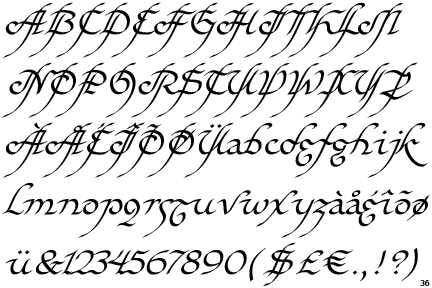 ABCDEFGHIJKLM
NOPQRSTUVWXYZ
ÀÅÉÎÕØÜabcdefghijk
lmnopqrstuvwxyzàåéîõø
ü&1234567890($£€.,!?)
36